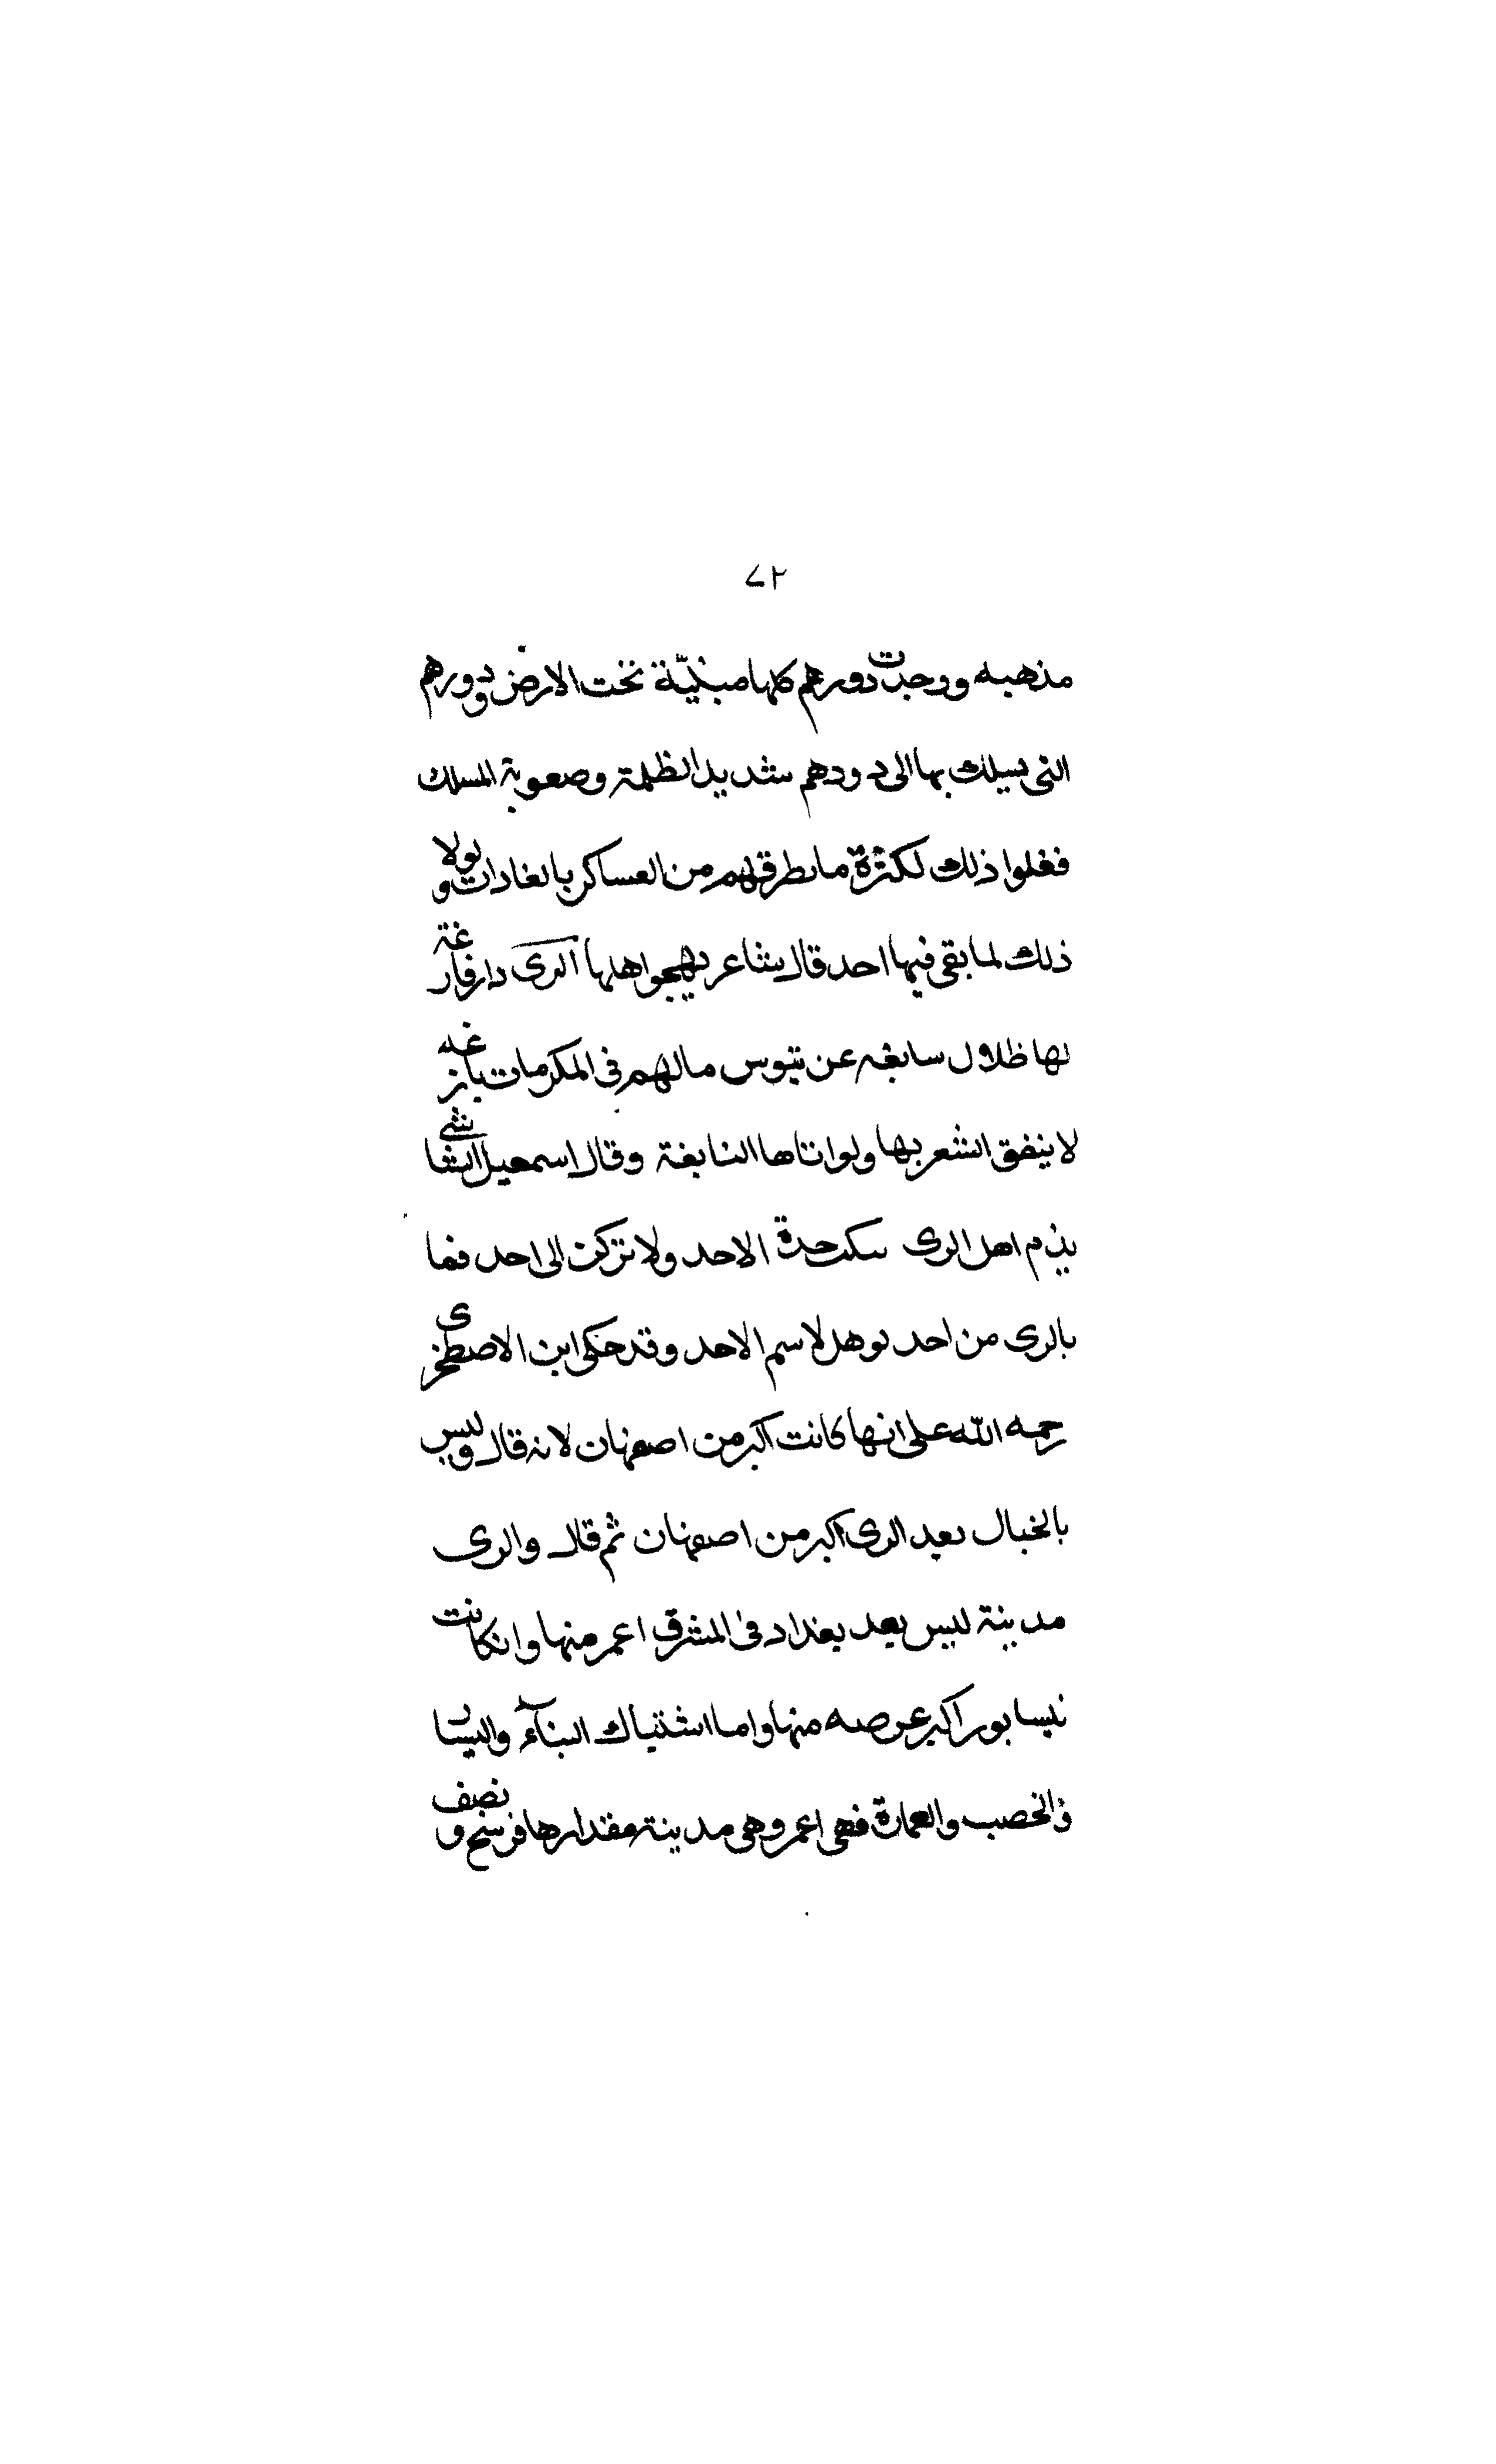 ٧٢
مذهبه ووجدت دورهم كلها مبنيّة تخت الارض ودورهم
التى يسلك بها الى دودهم شديد الظلمة وصعوبة المسلك
فغلوا ذلك لكثرة ما يطرقهم من العساكر بالغادات ولولا
ذلك لما بقى فيها احد قال شاعر يهجوا اهلها الرى دار فارغة
لها ظلال سابغه عن تيوس مالهم فى المكرمات بازغه
لا ينفق الشعر بها ولو اتاها النابغة وقال اسمعيل الشاشى
يذم اهل الرى سكت حدة الاحد ولا تركن الى احد فما
بالرى من احد نوهل لاسم الاحد وقد حكى ابن الاصطخرى
رحمه الله على انها كانت اكبر من اصفهان لانه قال وليس
بالخبال بعيد الرى اكبر من اصفهان ثم قال والرى
مدينة ليس بعد بغداد فى المشرق اعمر منها وانكانت
نيسابور اكبر عرصه منها واما اشتباك البنآء واليسار
والخصب والعمارة فهى اعمر وهى مدينة مقدارها فرسخ ونصف